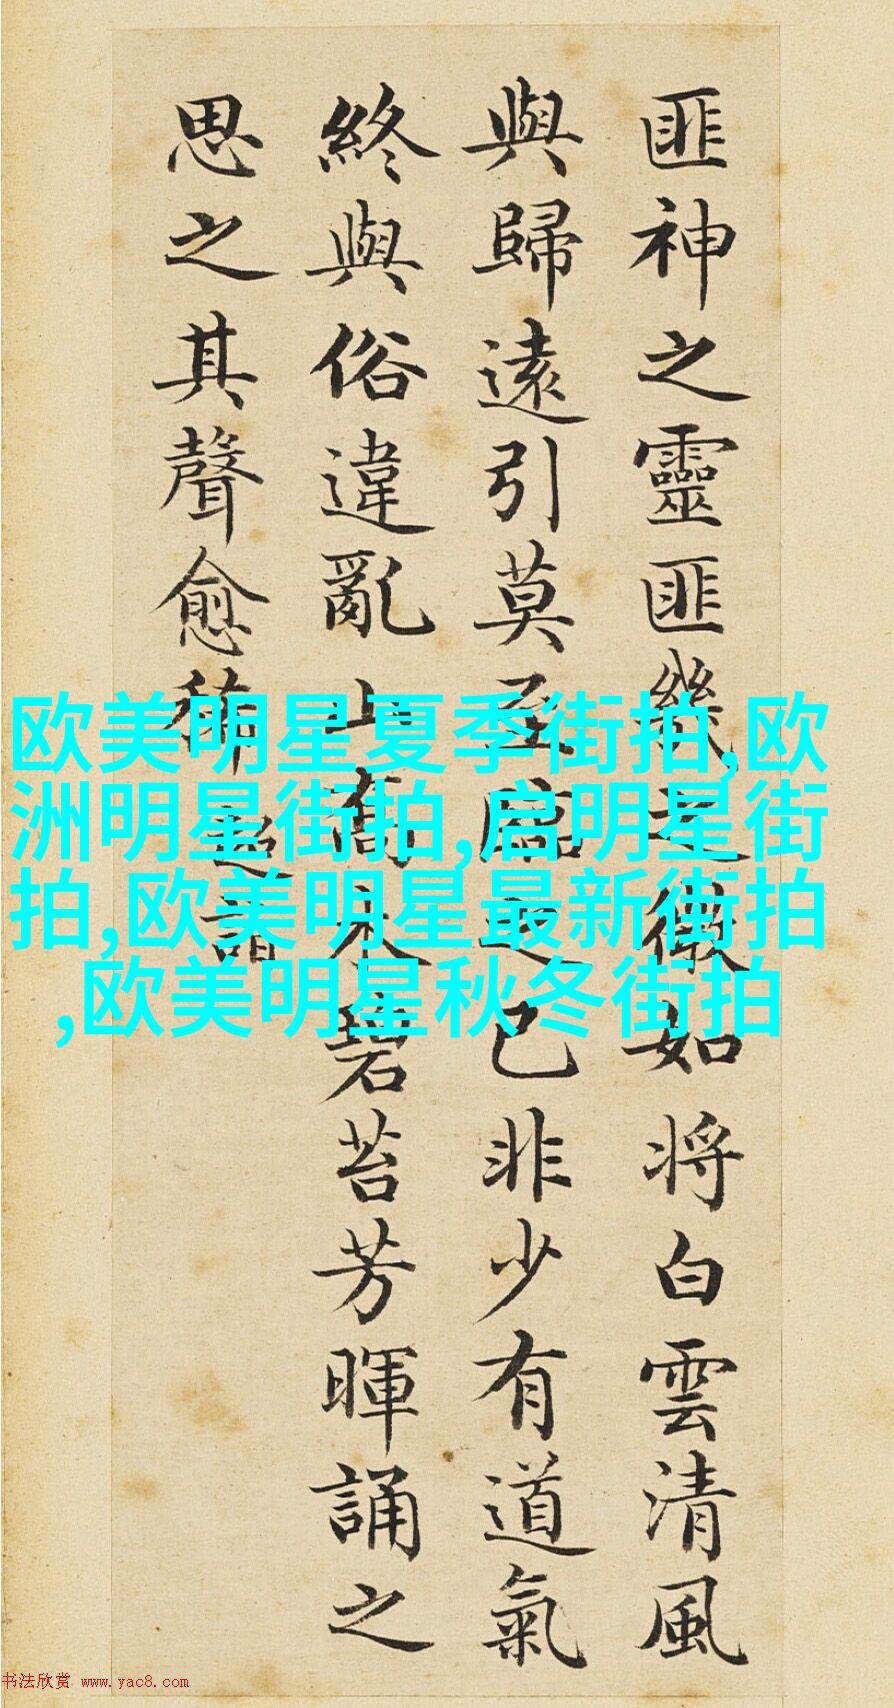 匪神之靈匪幾之微如將白雲清風
與歸遠引莫至臨之已非少有道氣
終與俗違亂山喬木碧苔芳暉誦之
思之其聲愈稀
超詣
欧美明星夏季街拍,欧
洲明星街拍,启明星街
拍,欧美明星最新街拍
,欧美明星秋冬街拍
书法欣赏 www.yac8.com